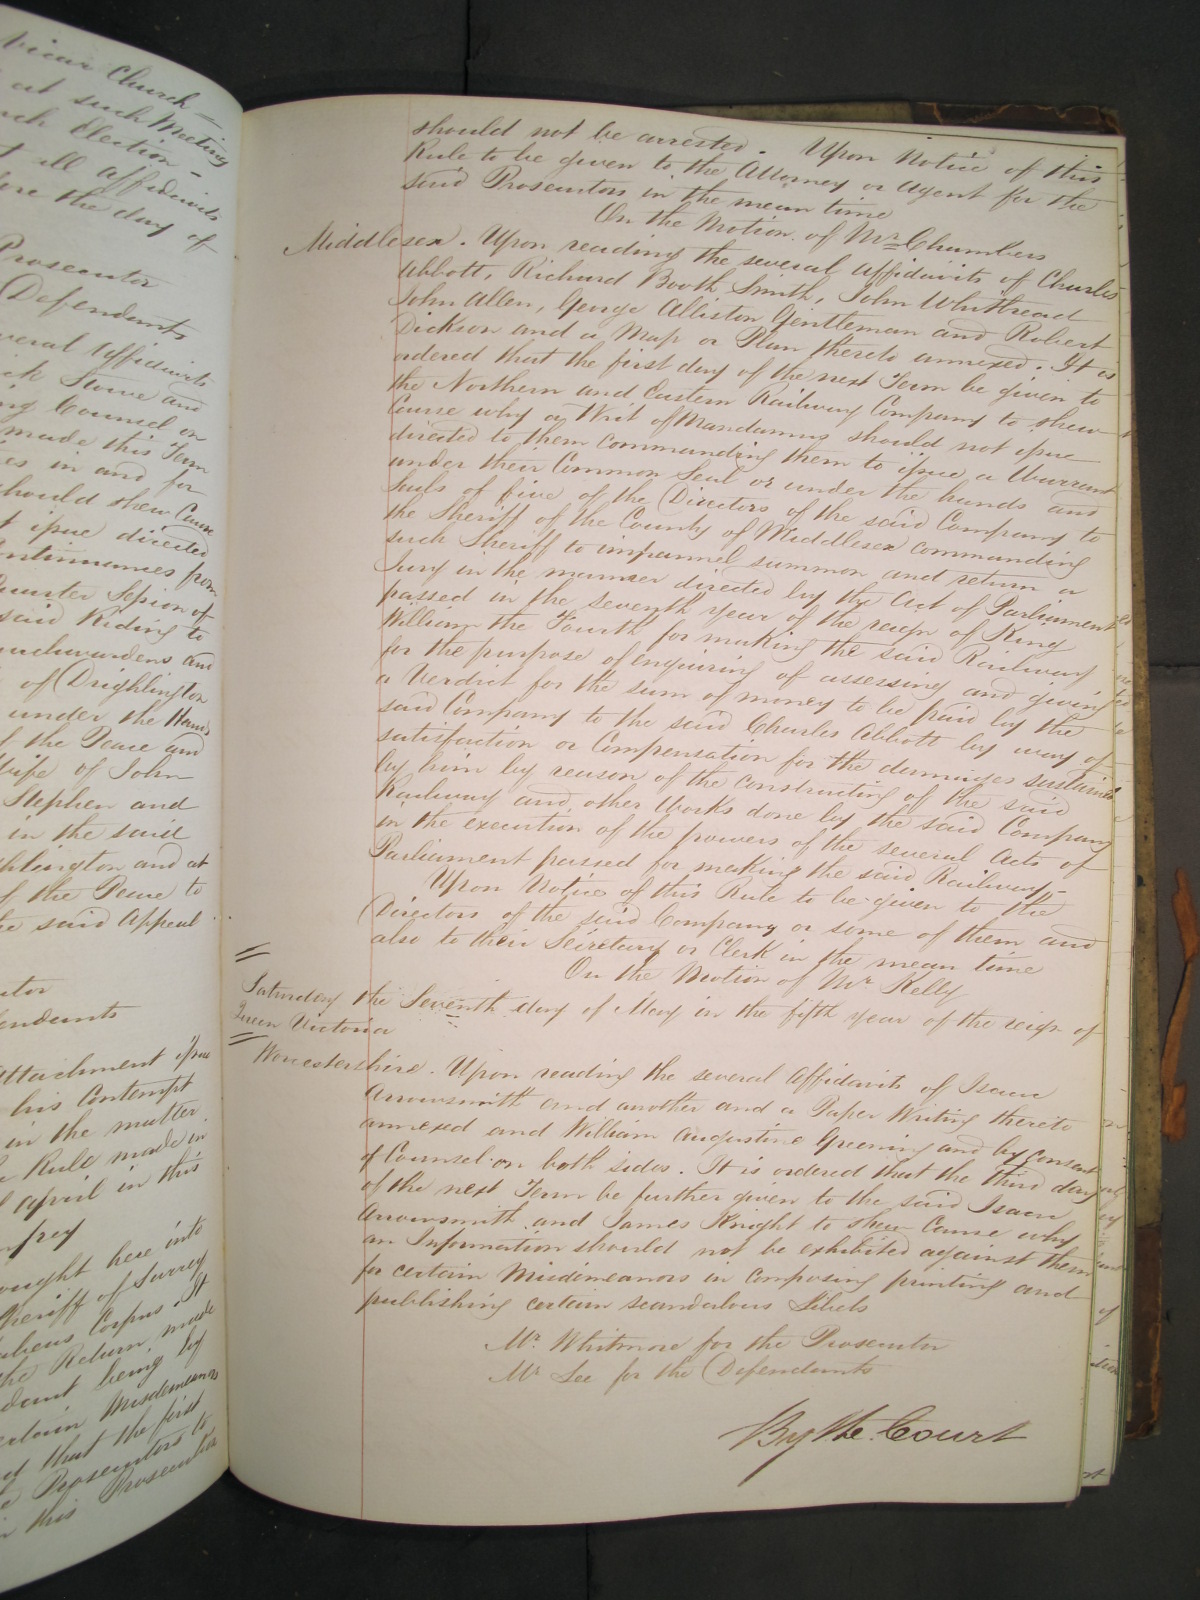 Vicar Church
at such Meeting
Election
all affidavits
the day of
Prosecutor
Defendants
several Affidavits
Stowe and
Counsel on
made this Term
in and for
should shew Cause
issue directed
Continuances from
Quarter Session of
said Riding to
Churchwardens and
of Drighlington
under the Hands
of the Peace and
wife of John
Stephen and
in the said
Drighlington and at
of the Peace to
the said Appeal
Defendants
Attachment issue
his Contempt
in the matter
Rule made in
April in this
brought here into
Sheriff of Surrey
Habeas Corpus. It
the Return made
Defendant being by
certain Misdemeanors
that the first
Prosecutors to
this Prosecution
should not be arrested. Upon Notice of this
Rule to be given to the Attorney or Agent for the
said Prosecutors in the mean time
On the Motion of Mr Chambers
Middlesex. Upon reading the several Affidavits of Charles
Abbott, Richard Booth Smith, John Whitbread
John Allen, George Alliston Gentleman and Robert
Dickson and a Map or Plan thereto annexed. It is
ordered that the first day of the next Term be given to
the Northern and Eastern Railway Company to shew
Cause why a Writ of Mandamus should not issue
directed to them commanding them to issue a Warrant
under their Common Seal or under the hands and
Seals of five of the Directors of the said Company to
the Sheriff of the County of Middlesex commanding
such Sheriff to impannel summon and return a
Jury in the manner directed by the Act of Parliament
passed in the seventh year of the reign of King
William the Fourth for making the said Railway
for the purpose of enquiring of assessing and giving
a Verdict for the sum of money to be paid by the
said Company to the said Charles Abbott by way of
satisfaction or Compensation for the damages sustained
by him by reason of the constructing of the said
Railway and other Works done by the said Company
in the execution of the powers of the several Acts of
Parliament passed for making the said Railway.
Upon Notice of this Rule to be given to the
Directors of the said Company or some of them and
also to their Secretary or Clerk in the mean time
On the Motion of Mr Kelly
Saturday the Seventh day of May in the fifth year of the reign of
Queen Victoria
Worcestershire. Upon reading the several Affidavits of Isaac
Arrowsmith and another and a Paper Writing thereto
annexed and William Augustine Greening and by Consent
of Counsel on both sides. It is ordered that the third day
of the next Term be further given to the said Isaac
Arrowsmith and James Knight to shew Cause why
an Information should not be exhibited against them
for certain Misdemeanors in composing printing and
publishing certain scandalous Libels
Mr. Whitmore for the Prosecutor
Mr Lee for the Defendants
By the Court